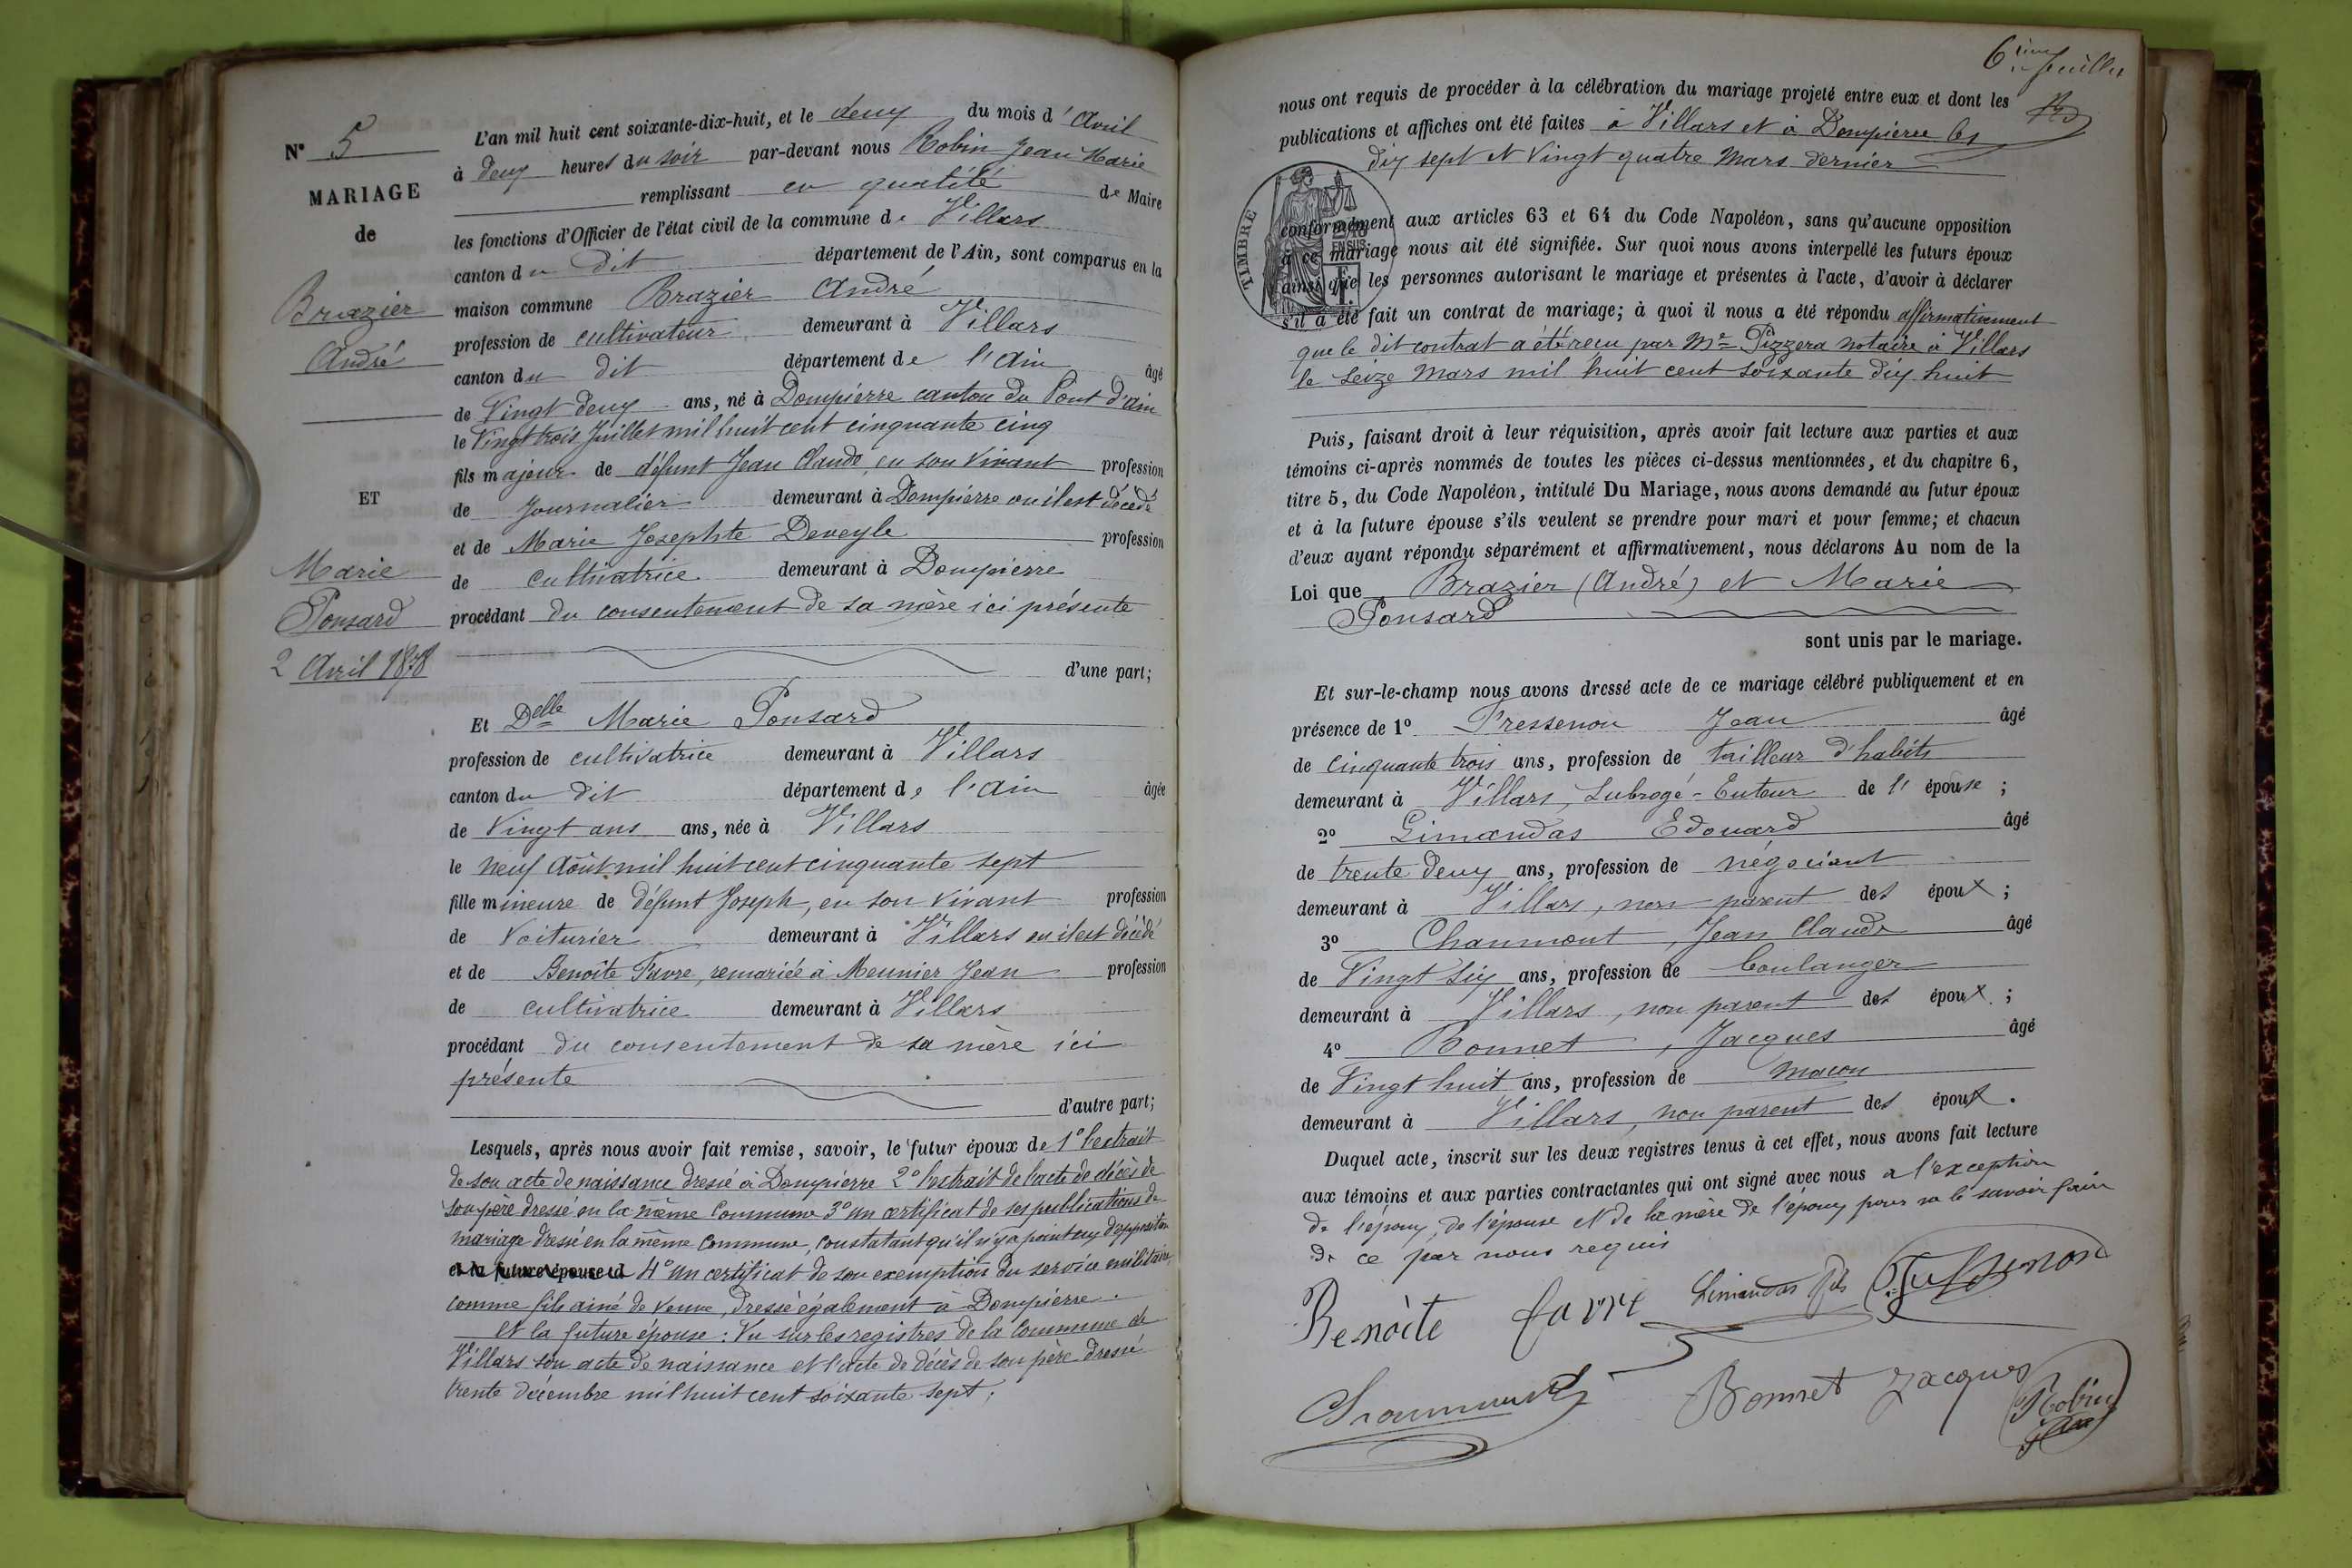 N° 5
MARIAGE
de
Brazier
André
ET
Marie
Ponsard
2 Avril 1878
L'an mil huit cent soixante-dix-huit, et le deux du mois d'Avril
à deux heures du soir par-devant nous Robin Jean Marie
remplissant en qualité de Maire
les fonctions d'Officier de l'état civil de la commune de Villars
canton du dit département de l'Ain, sont comparus en la
maison commune Brazier André
profession de cultivateur demeurant à Villars
canton du dit département de l'Ain âgé
de Vingt deux ans, né à Dompierre canton du Pont d'ain
le Vingt trois Juillet mil huit cent cinquante cinq
fils majeur de défunt Jean Claude, en son vivant profession
de Journalier demeurant à Dompierre ou il est décédé
et de Marie Josephte Deveyle profession
de cultivatrice demeurant à Dompierre
procédant du consentement de sa mère ici présente
d'une part;
Et Delle Marie Ponsard
profession de cultivatrice demeurant à Villars
canton du dit département de l'Ain âgée
de Vingt ans ans, née à Villars
le neuf Août mil huit cent cinquante sept
fille mineure de défunt Joseph, en son vivant profession
de Voiturier demeurant à Villars ou il est décédé
et de Benoîte Favre, remariée à Meunier Jean profession
de cultivatrice demeurant à Villars
procédant du consentement de sa mère ici
présente
d'autre part;
Lesquels, après nous avoir fait remise, savoir, le futur époux de 1° l'extrait
de son acte de naissance dressé à Dompierre 2° l'extrait de l'acte de décès de
son père dressé en la même Commune 3° un certificat de ses publications de
mariage dressé en la même Commune, constatant qu'il n'y a point eu d'opposition
et la future épouse d 4° un certificat de son exemption du service militaire
comme fils ainé de veuve, dressé également à Dompierre.
et la future épouse : Vu sur les registres de la Commune de
Villars son acte de naissance et l'acte de décès de son père dressé
trente décembre mil huit cent soixante sept;
6ème feuillet
nous ont requis de procéder à la célébration du mariage projeté entre eux et dont les
publications et affiches ont été faites à Villars et à Dompierre les
dix sept et Vingt quatre Mars dernier
TIMBRE
conformément aux articles 63 et 64 du Code Napoléon, sans qu'aucune opposition
à ce mariage nous ait été signifiée. Sur quoi nous avons interpellé les futurs époux
ainsi que les personnes autorisant le mariage et présentes à l'acte, d'avoir à déclarer
s'il a été fait un contrat de mariage; à quoi il nous a été répondu affirmativement
que le dit contrat a été reçu par Me Pizzera notaire à Villars
le seize Mars mil huit cent soixante dix huit
Puis, faisant droit à leur réquisition, après avoir fait lecture aux parties et aux
témoins ci-après nommés de toutes les pièces ci-dessus mentionnées, et du chapitre 6,
titre 5, du Code Napoléon, intitulé Du Mariage, nous avons demandé au futur époux
et à la future épouse s'ils veulent se prendre pour mari et pour femme; et chacun
d'eux ayant répondu séparément et affirmativement, nous déclarons Au nom de la
Loi que Brazier (André) et Marie
Ponsard
sont unis par le mariage.
Et sur-le-champ nous avons dressé acte de ce mariage célébré publiquement et en
présence de 1° Fressenon Jean âgé
de cinquante trois ans, profession de tailleur d'habits
demeurant à Villars, Subrogé-Tuteur de l'épouse ;
2° Limandas Edouard âgé
de trente deux ans, profession de négociant
demeurant à Villars, non parent des époux ;
3° Chaumont, Jean Claude âgé
de Vingt six ans, profession de boulanger
demeurant à Villars, non parent des époux ;
4° Bonnet, Jacques âgé
de Vingt huit ans, profession de macon
demeurant à Villars, non parent des époux.
Duquel acte, inscrit sur les deux registres tenus à cet effet, nous avons fait lecture
aux témoins et aux parties contractantes qui ont signé avec nous a l'exception
de l'époux, de l'épouse et de la mère de l'époux pour ne le savoir faire
de ce par nous requis
Benoite favre Limandas fils Fressenon
Chaumont Bonnet Jacques Robin